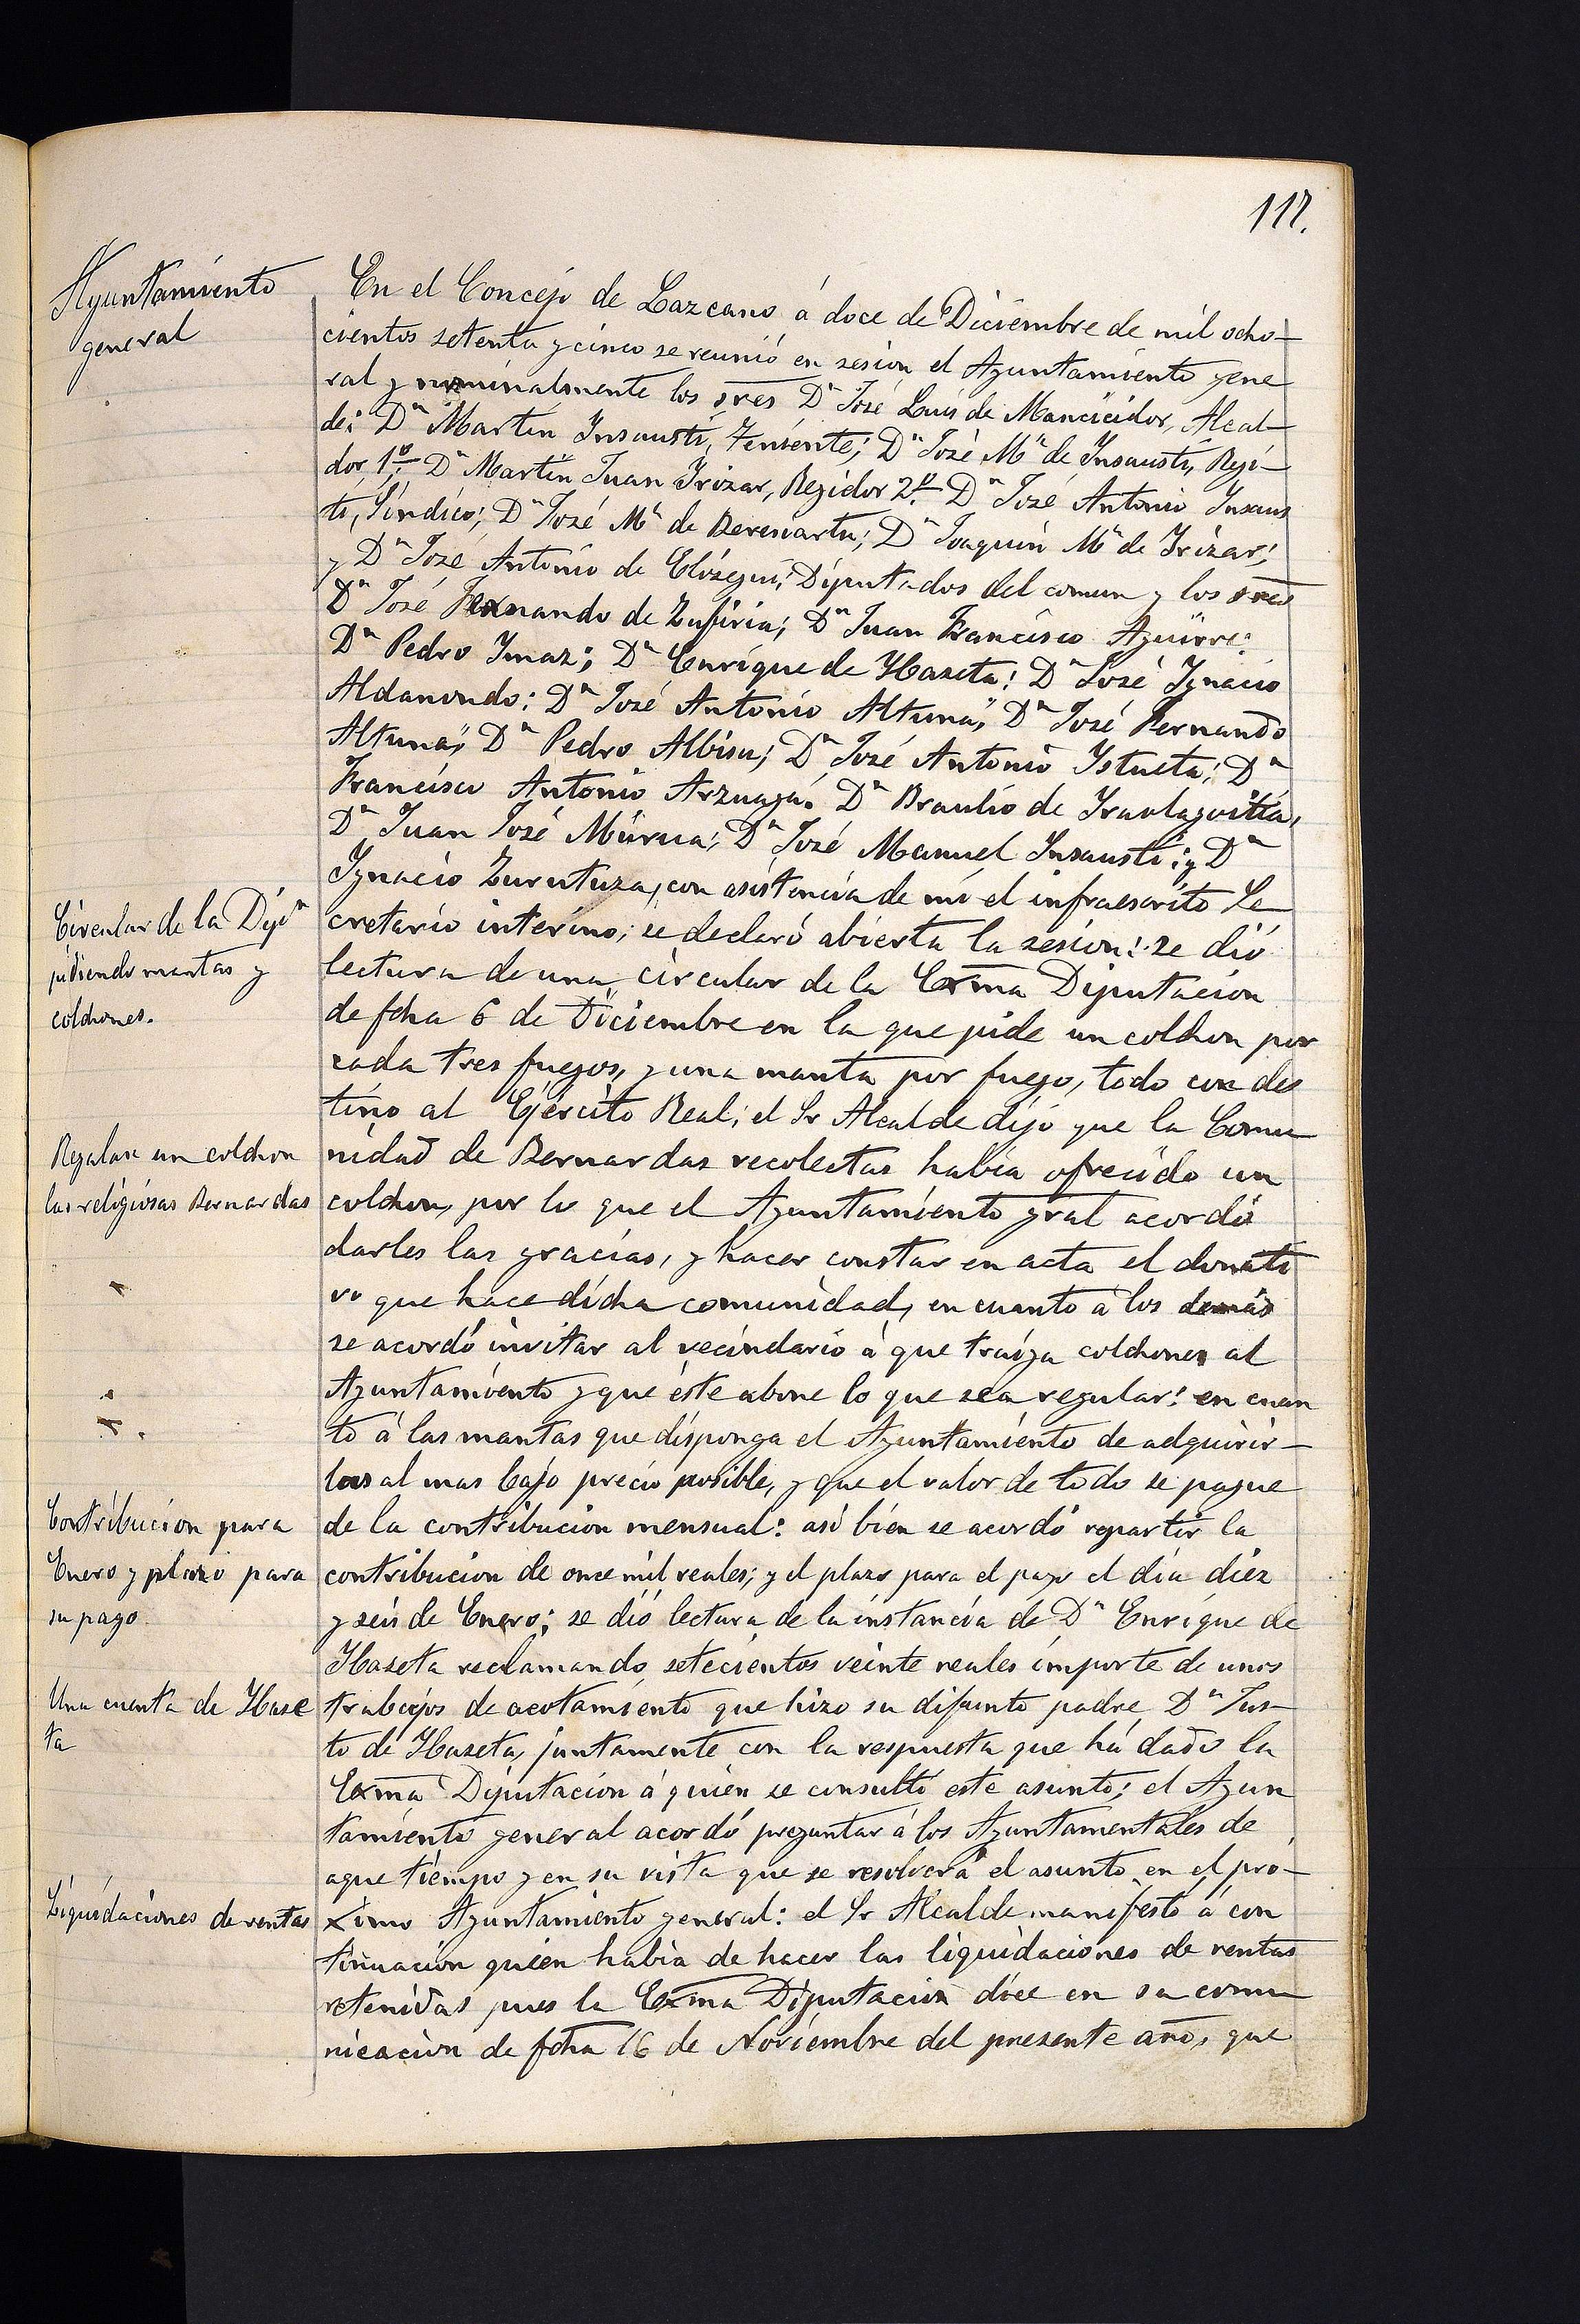 117.
Ayuntamiento
general
En el Concejo de Lazcano á doce de Diciembre de mil ocho-
cientos setenta y cinco se reunió en sesion el Ayuntamiento gene
ral y nominalmente los sres Dn José Luis de Mancicidor, Alcal-
de; Dn Martin Insausti, Teniente; Dn José Ma de Insausti, Regi-
dor, 1o; Dn Martin Juan Irizar, Regidor 2o. Dn José Antonio Insaus
ti, Síndico; Dn José Ma de Bereciartu; Dn Joaquin Ma de Irizar;
y Dn José Antonio de Elósegui; Diputados del comun y los sres
Dn José Fernando de Zufiria; Dn Juan Francisco Aguirre;
Dn Pedro Imaz; Dn Enrique de Ybaseta; Dn José Ignacio
Aldanondo; Dn José Antonio Altuna; Dn José Fernando
Altuna; Dn Pedro Albisu; Dn José Antonio Istueta; Dn
Francisco Antonio Arzuaga. Dn Braulio de
Dn Juan José Múrua; Dn José Manuel Insausti; y Dn
Ignacio Zurutuza, con asistencia de mi el infraescrito Se
Circular de la Dipn
pidiendo mantas y
colchones.
cretario interino; se declaró abierta la sesion: se dió
lectura de una circular de la Exma Diputacion
de fcha 6 de Diciembre en la que pide un colchon por
cada tres fuegos, y una manta por fuego, todo con des
tino al Ejército Real; el Sr Alcalde dijo que la Comu
Regalase un colchon
las religiosas Bernardas
nidad de Bernardas recolectas habia ofrecido un
colchon, por lo que el Ayuntamiento gral acordó
darles las gracias, y hacer constar en acta el donati
vo que hace dicha comunidad, en cuanto á los demás
se acordó invitar al vecindario á que traiga colchones al
Ayuntamiento y que éste abone lo que sea regular: en cuan
to á las mantas que disponga el Ayuntamiento de adquirir-
las al mas bajo precio posible, y que el valor de todo se pague
Contribucion para
Enero y plazo para
su pago.
de la contribucion mensual: asi bien se acordó repartir la
contribucion de once mil reales; y el plazo para el pago el dia diez
y seis de Enero; se dió lectura de la instancia de Dn Enrique de
Ybaseta reclamando setecientos veinte reales importe de unos
Una cuenta de Ybase
ta
trabajos de acotamiento que hizo su difunto padre Dn Jus-
to de Ybaseta, juntamente con la respuesta que há dado la
Exma Diputacion á quien se consultó este asunto; el Ayun
tamiento general acordó preguntar á los Ayuntamentales de
aque tiempo y en su vista que se resolverá el asunto en el pró-
Liquidaciones de rentas
ximo Ayuntamiento general: el Sr Alcalde manifestó á con
tinuacion quien habia de hacer las liquidaciones de rentas
retenidas pues la Exma Diputacion dice en su comu
nicacion de fcha 16 de Noviembre del presente año, que